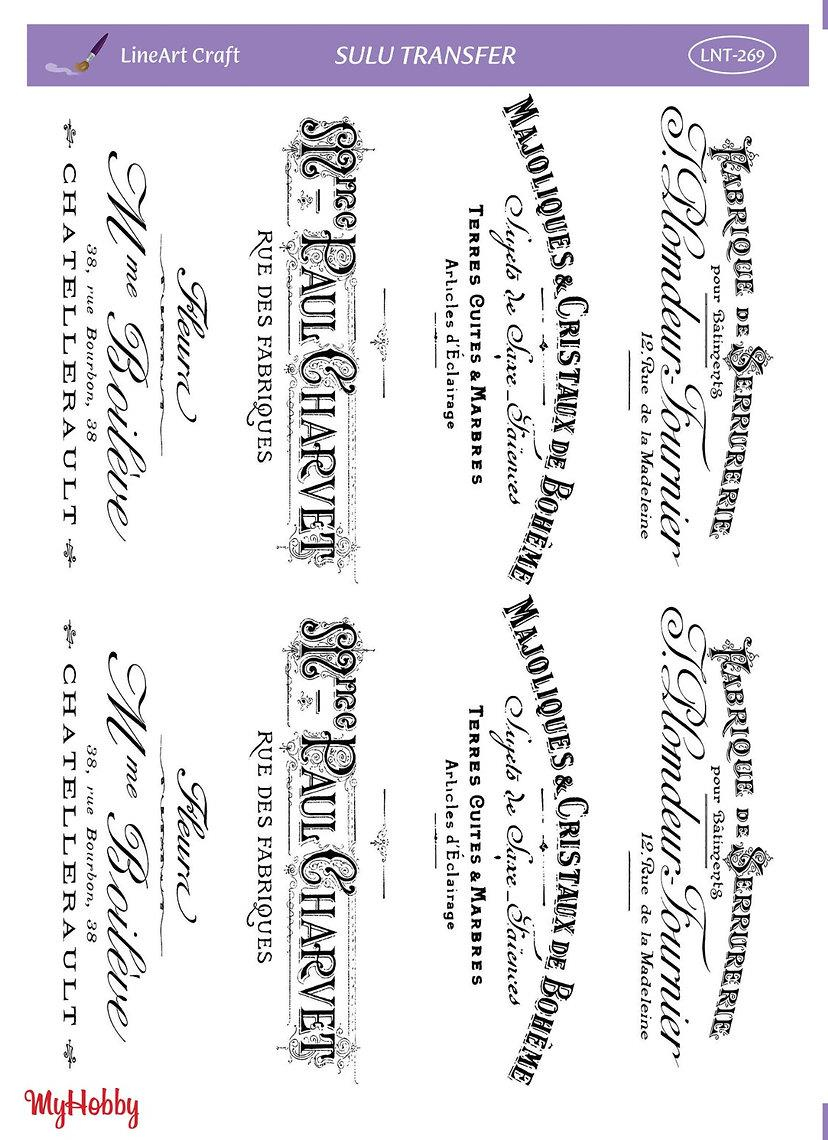 LineArt Craft
SULU TRANSFER
LNT-269
FABRIQUE DE SERRURERIE
pour Bâtiments
J. Plomdeur-Fournier
12, Rue de la Madeleine
MAJOLIQUES & CRISTAUX DE BOHÈME
Sujets de Saxe _ Faïences
TERRES CUITES & MARBRES
Articles d'Éclairage
PAUL CHARVET
RUE DES FABRIQUES
Fleurs
Mme Boilève
38, rue Bourbon, 38
CHATELLERAULT
FABRIQUE DE SERRURERIE
pour Bâtiments
J. Plomdeur-Fournier
12, Rue de la Madeleine
MAJOLIQUES & CRISTAUX DE BOHÈME
Sujets de Saxe _ Faïences
TERRES CUITES & MARBRES
Articles d'Éclairage
PAUL CHARVET
RUE DES FABRIQUES
Fleurs
Mme Boilève
38, rue Bourbon, 38
CHATELLERAULT
MyHobby